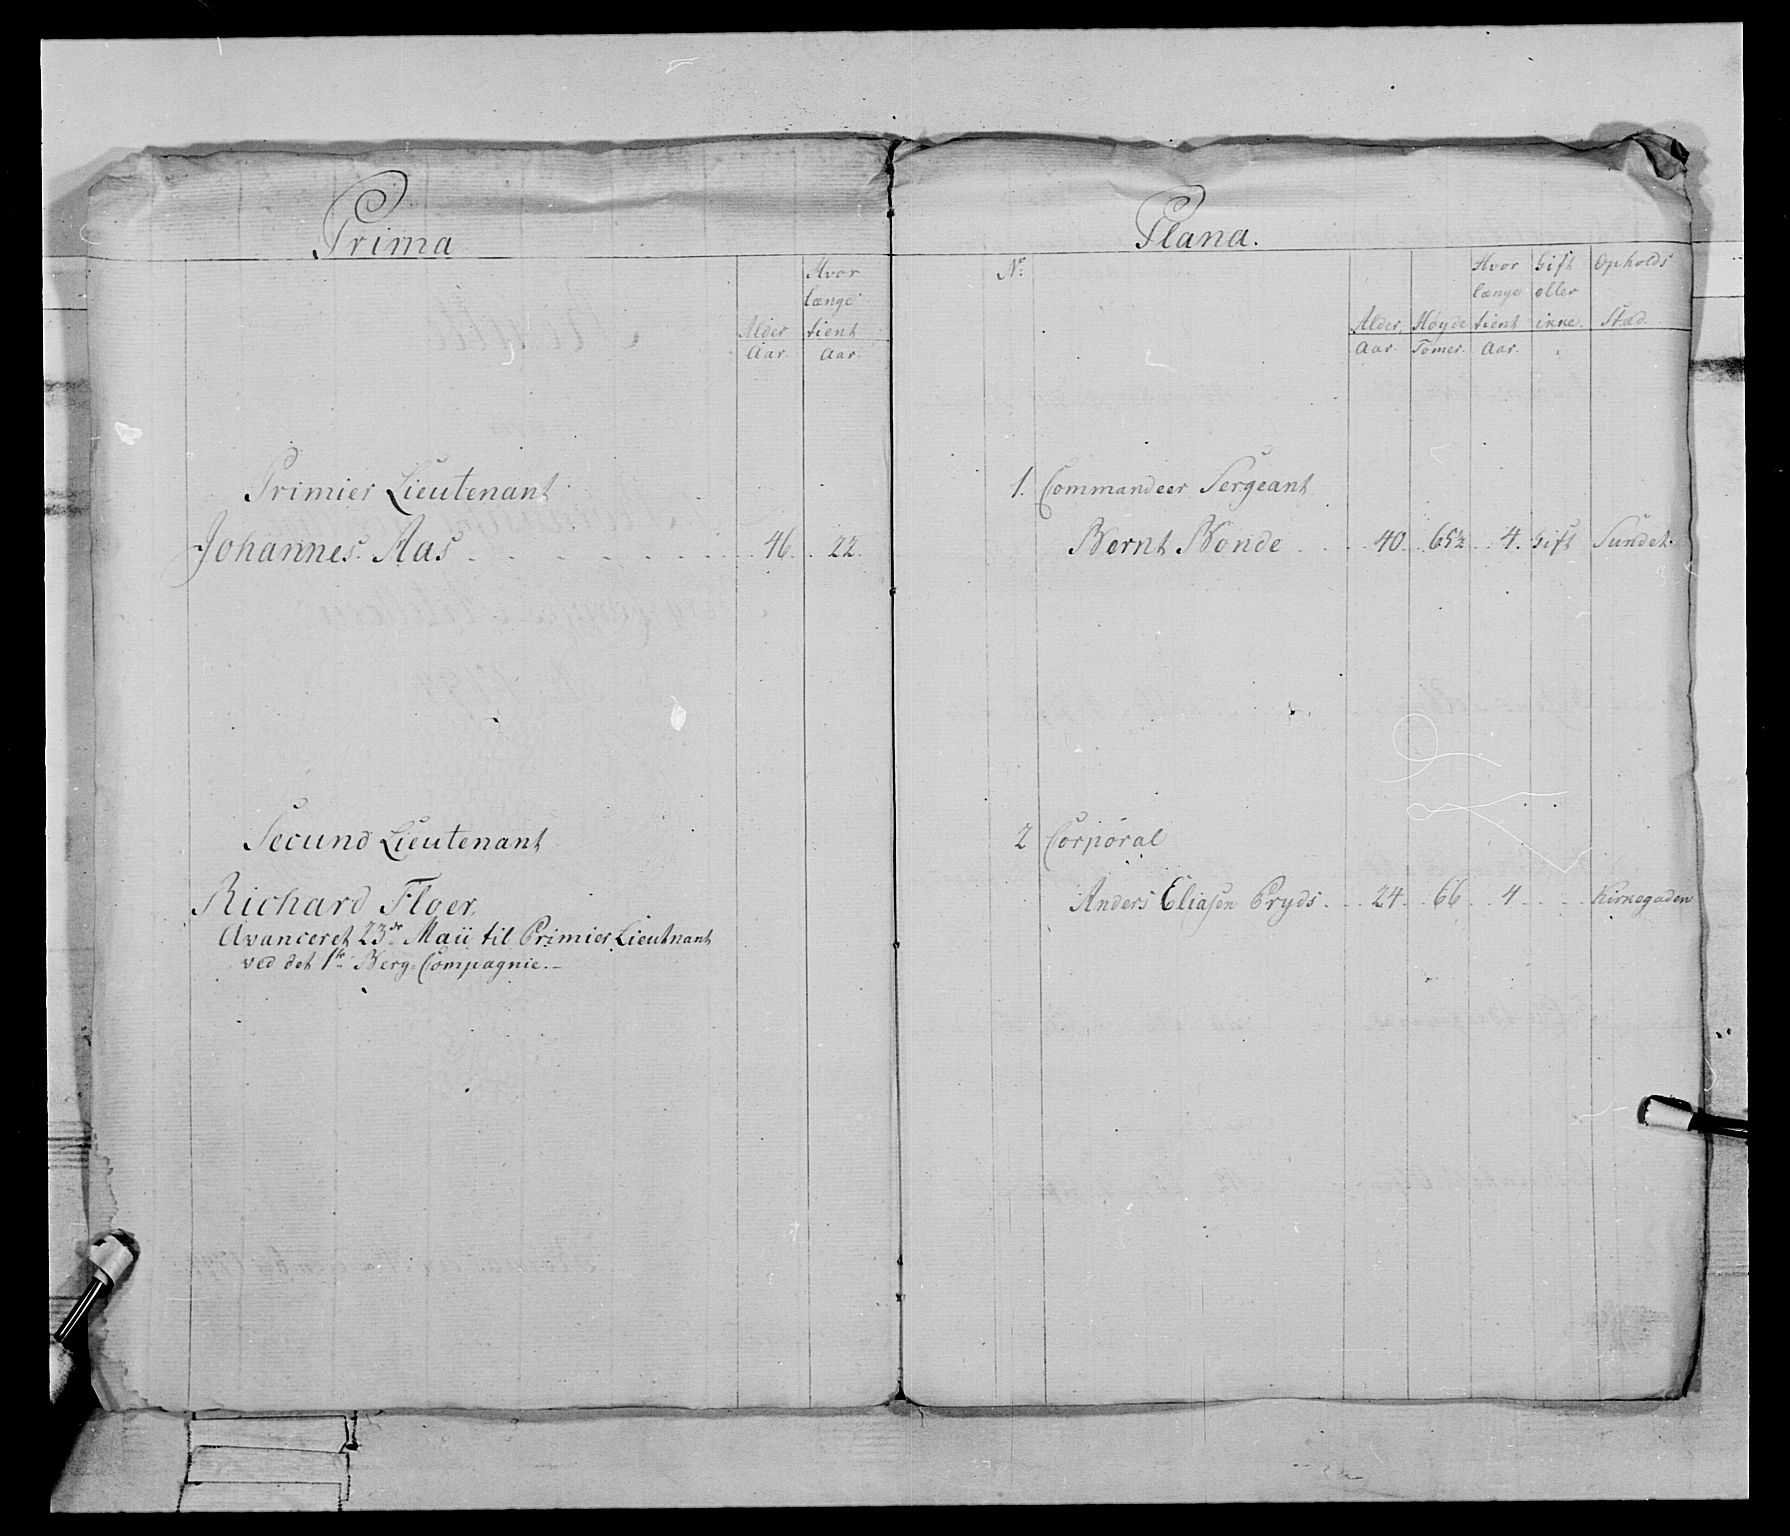 Prima
Alder Aar
Hvor længe tient Aar
Primier Lieutenant
Johannes Aas 46. 22.
Secund Lieutenant
Richard Floer,
Avanceret 23de Maii til Primier Lieutnant
ved det 1te Berg-Compagnie.
Plana.
No
Alder, Aar
Høyde Tomer
Hvor længe tient Aar.
Gift eller ikke.
Opholds Stæd.
1. Commandeer Sergeant
Bernt Bonde 40. 65½ 4. Gift Sundet.
2 Corporal
Anders Eliasen Pryds 24. 66 4 Kirkegaden